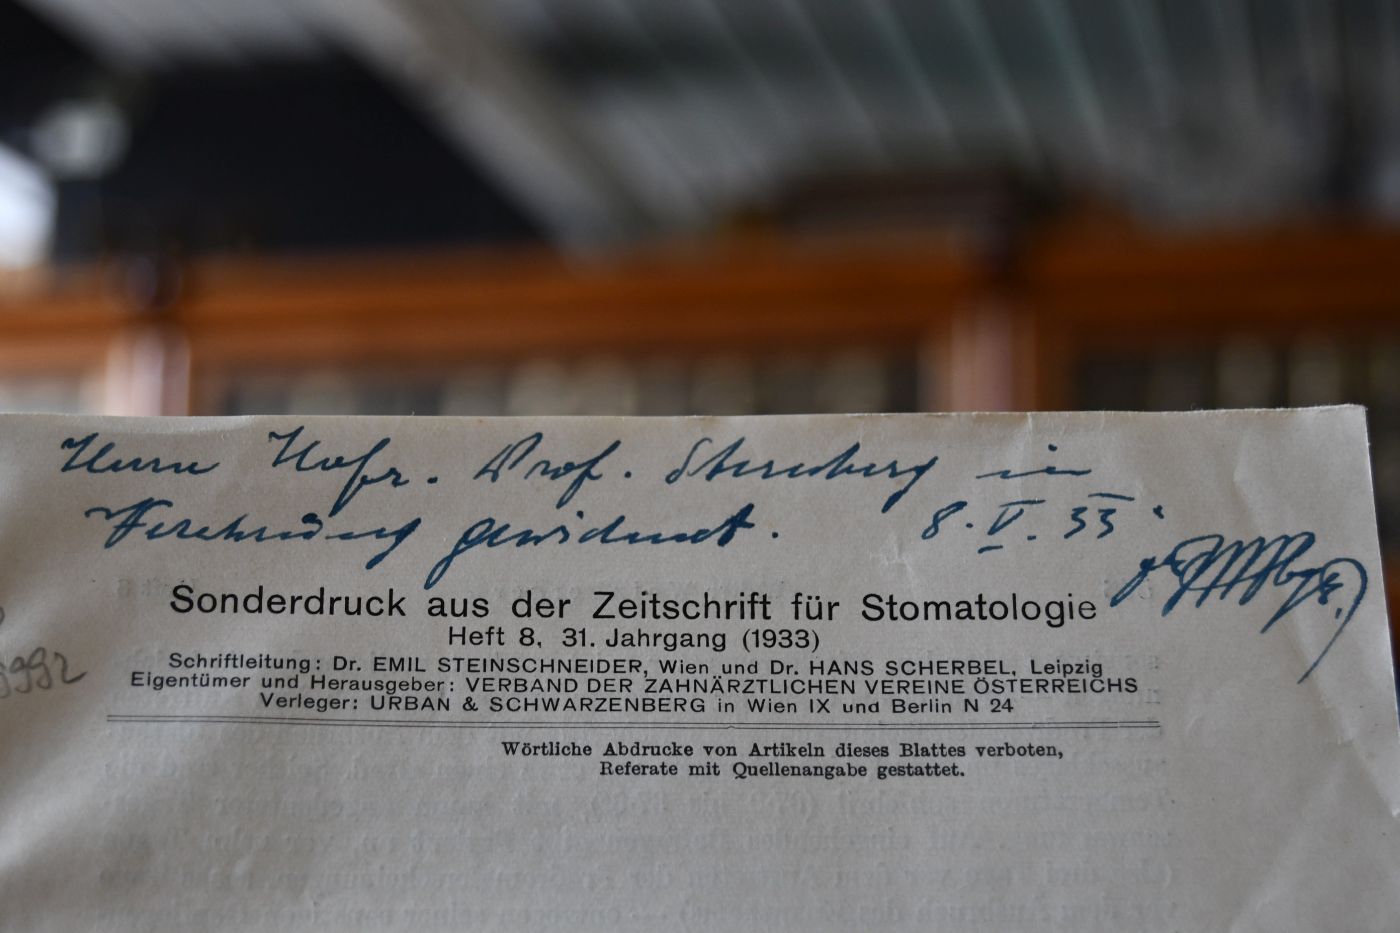 Herrn Hofr. Prof. Sternberg in
Verehrung gewidmet. 8. V. 33.
Sonderdruck aus der Zeitschrift für Stomatologie
Heft 8, 31. Jahrgang (1933)
Schriftleitung: Dr. EMIL STEINSCHNEIDER, Wien und Dr. HANS SCHERBEL, Leipzig
Eigentümer und Herausgeber: VERBAND DER ZAHNÄRZTLICHEN VEREINE ÖSTERREICHS
Verleger: URBAN & SCHWARZENBERG in Wien IX und Berlin N 24
Wörtliche Abdrucke von Artikeln dieses Blattes verboten,
Referate mit Quellenangabe gestattet.